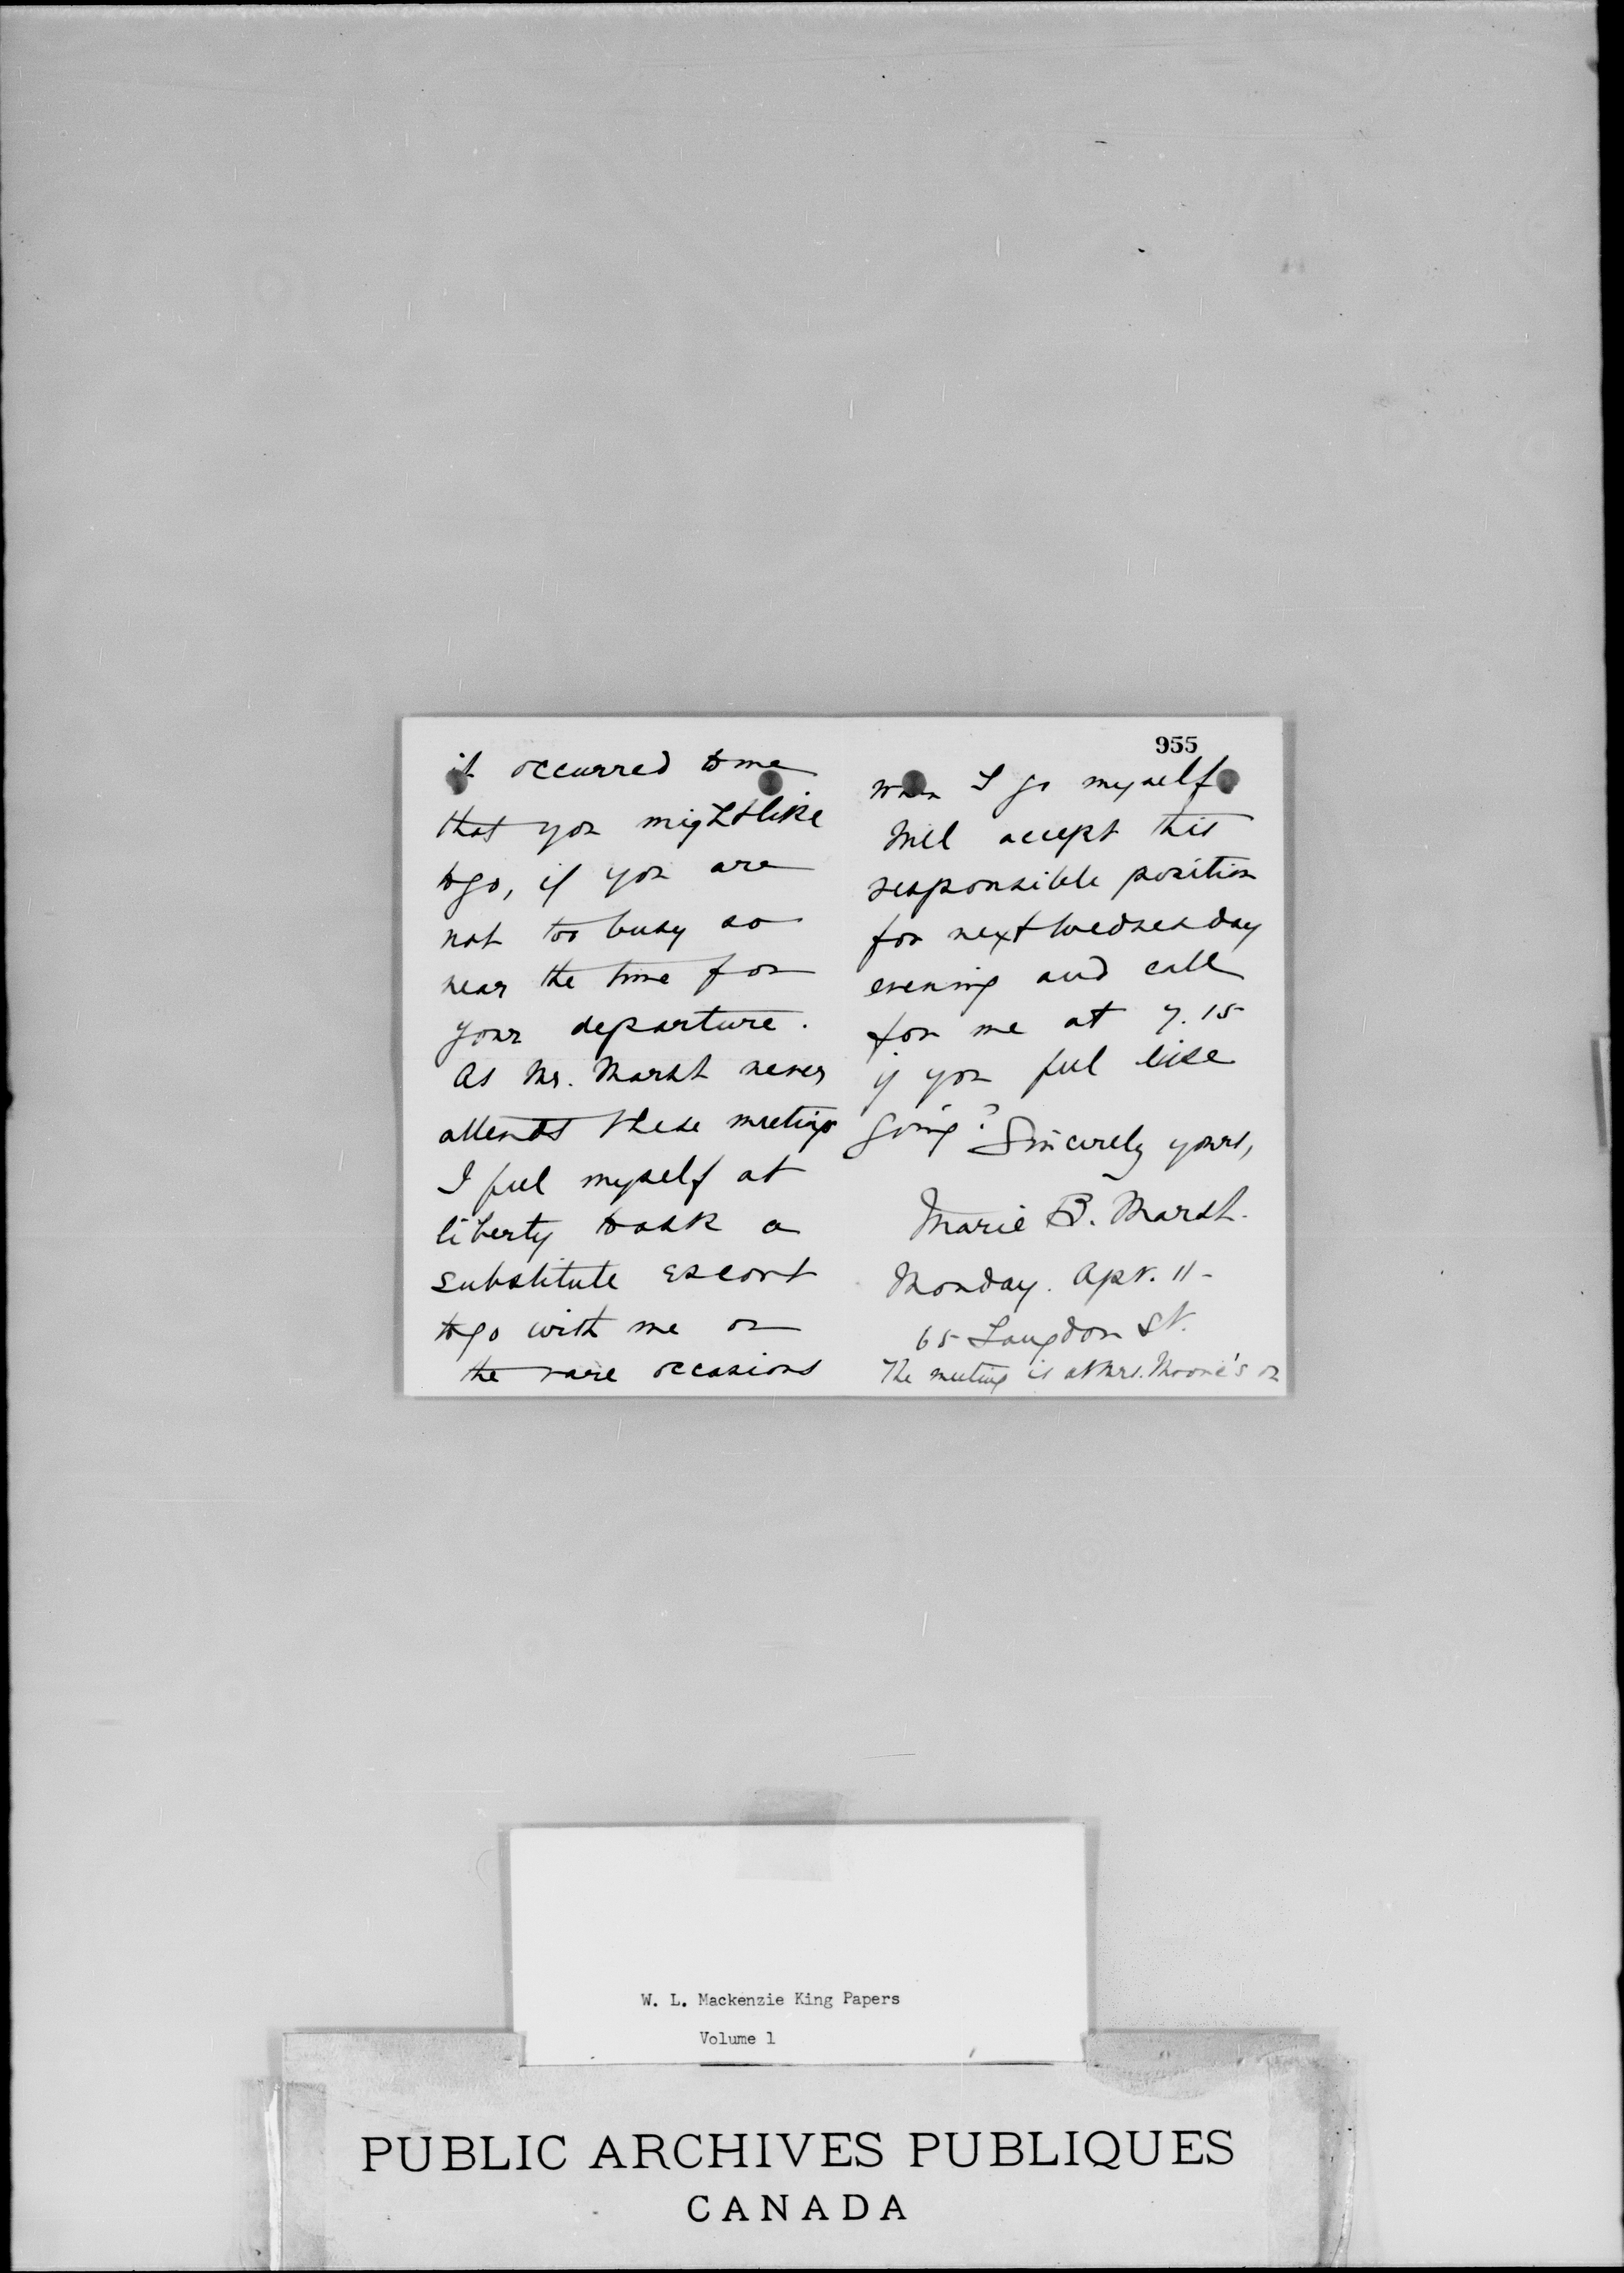 it occurred to me
that you might like
to go, if you are
not too busy so
near the time for
your departure.
As Mr. Marsh never
attends these meetings
I feel myself at
liberty to ask a
substitute escort
to go with me on
the rare occasions
955
when I go myself
Will accept this
responsible position
for next Wednesday
evening and call
for me at 7.15
if you feel like
going? Sincerely yours,
Marie B. Marsh.
Monday. Apr. 11-
65 Langdon St.
The meeting is at Mrs. Moore's on
W. L. Mackenzie King Papers
Volume 1
PUBLIC ARCHIVES PUBLIQUES
CANADA